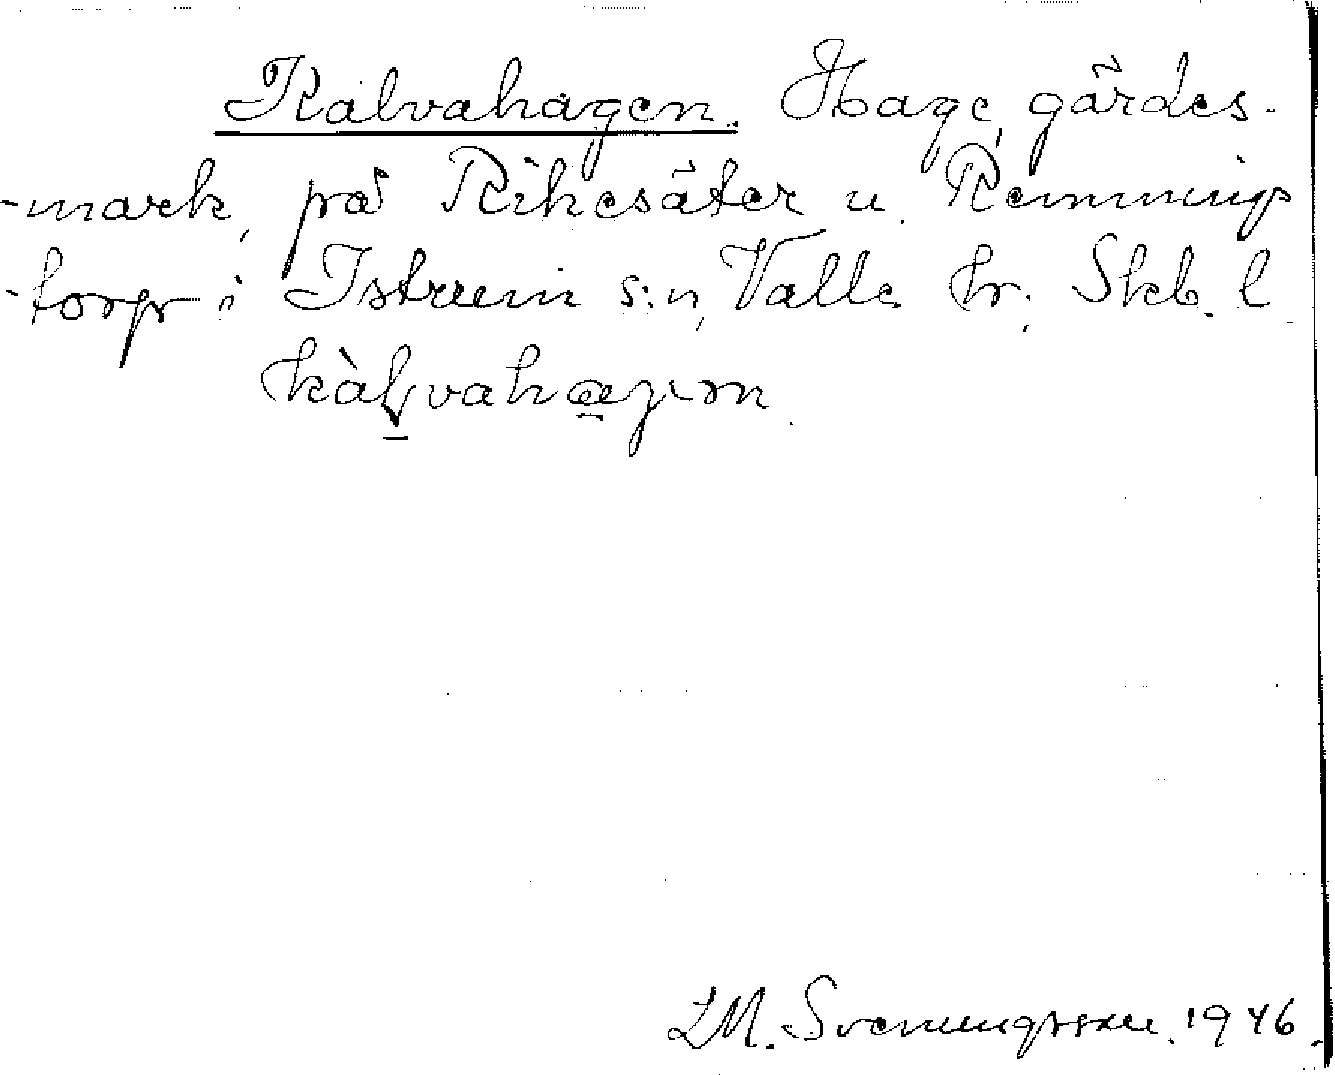 Kalvahagen. Hage, gärdes-
-mark, på Rihesäter u. Remmings
-torp i Istrum s:n, Valle hr. Skb. l
LM. Svenungsson. 1946.